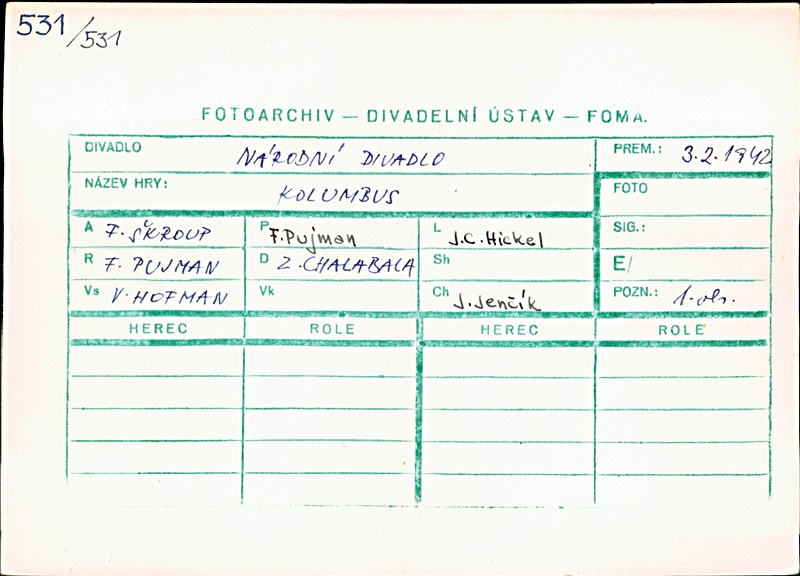 531/531
FOTOARCHIV — DIVADELNÍ ÚSTAV — FOMA.
DIVADLO NÁRODNÍ DIVADLO PREM.: 3.2.1942
NÁZEV HRY: KOLUMBUS FOTO
A F. ŠKROUP P F. Pujman L J.C. Hickel SIG.:
R F. PUJMAN D Z. CHALABALA Sh E/
Vs V. HOFMAN Vk Ch J. Jenčík POZN.: 1. ob.
HEREC ROLE HEREC ROLE